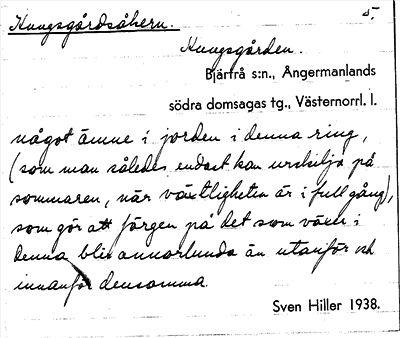 Kungsgårdsåkern. 5.
Kungsgården.
Bjärtrå s:n., Ångermanlands
södra domsagas tg., Västernorrl. l.
något ämne i jorden i denna ring,
(som man således endast kan urskilja på
sommaren, när växtligheten är i full gång),
som gör att färgen på det som växer i
denna blir annorlunda än utanför och
innanför densamma.
Sven Hiller 1938.